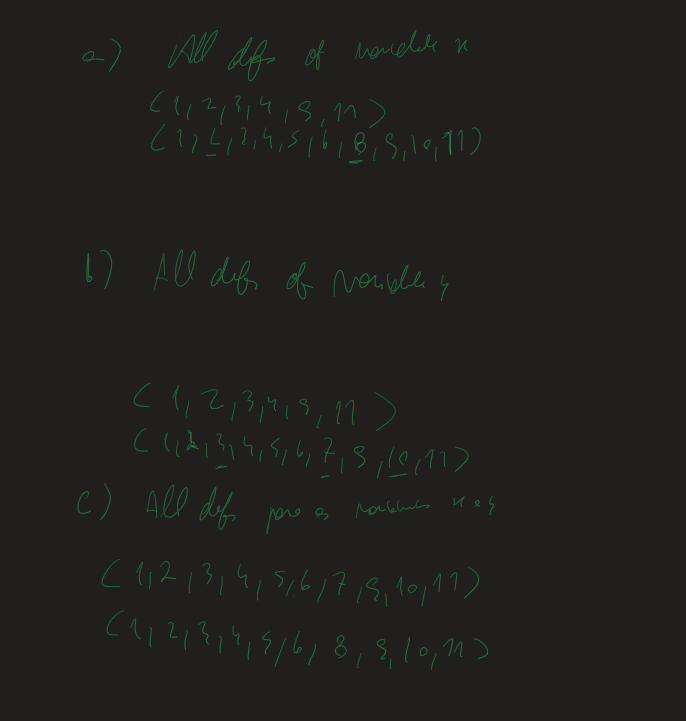 a) All defs of variable x
(1, 2, 3, 4, 9, 11)
(1, 2, 3, 4, 5, 6, 8, 9, 10, 11)
b) All defs of variable y
(1, 2, 3, 4, 9, 11)
(1, 2, 3, 4, 5, 6, 7, 9, 10, 11)
c) All defs para as x e y
(1, 2, 3, 4, 5, 6, 7, 9, 10, 11)
(1, 2, 3, 4, 5, 6, 8, 9, 10, 11)